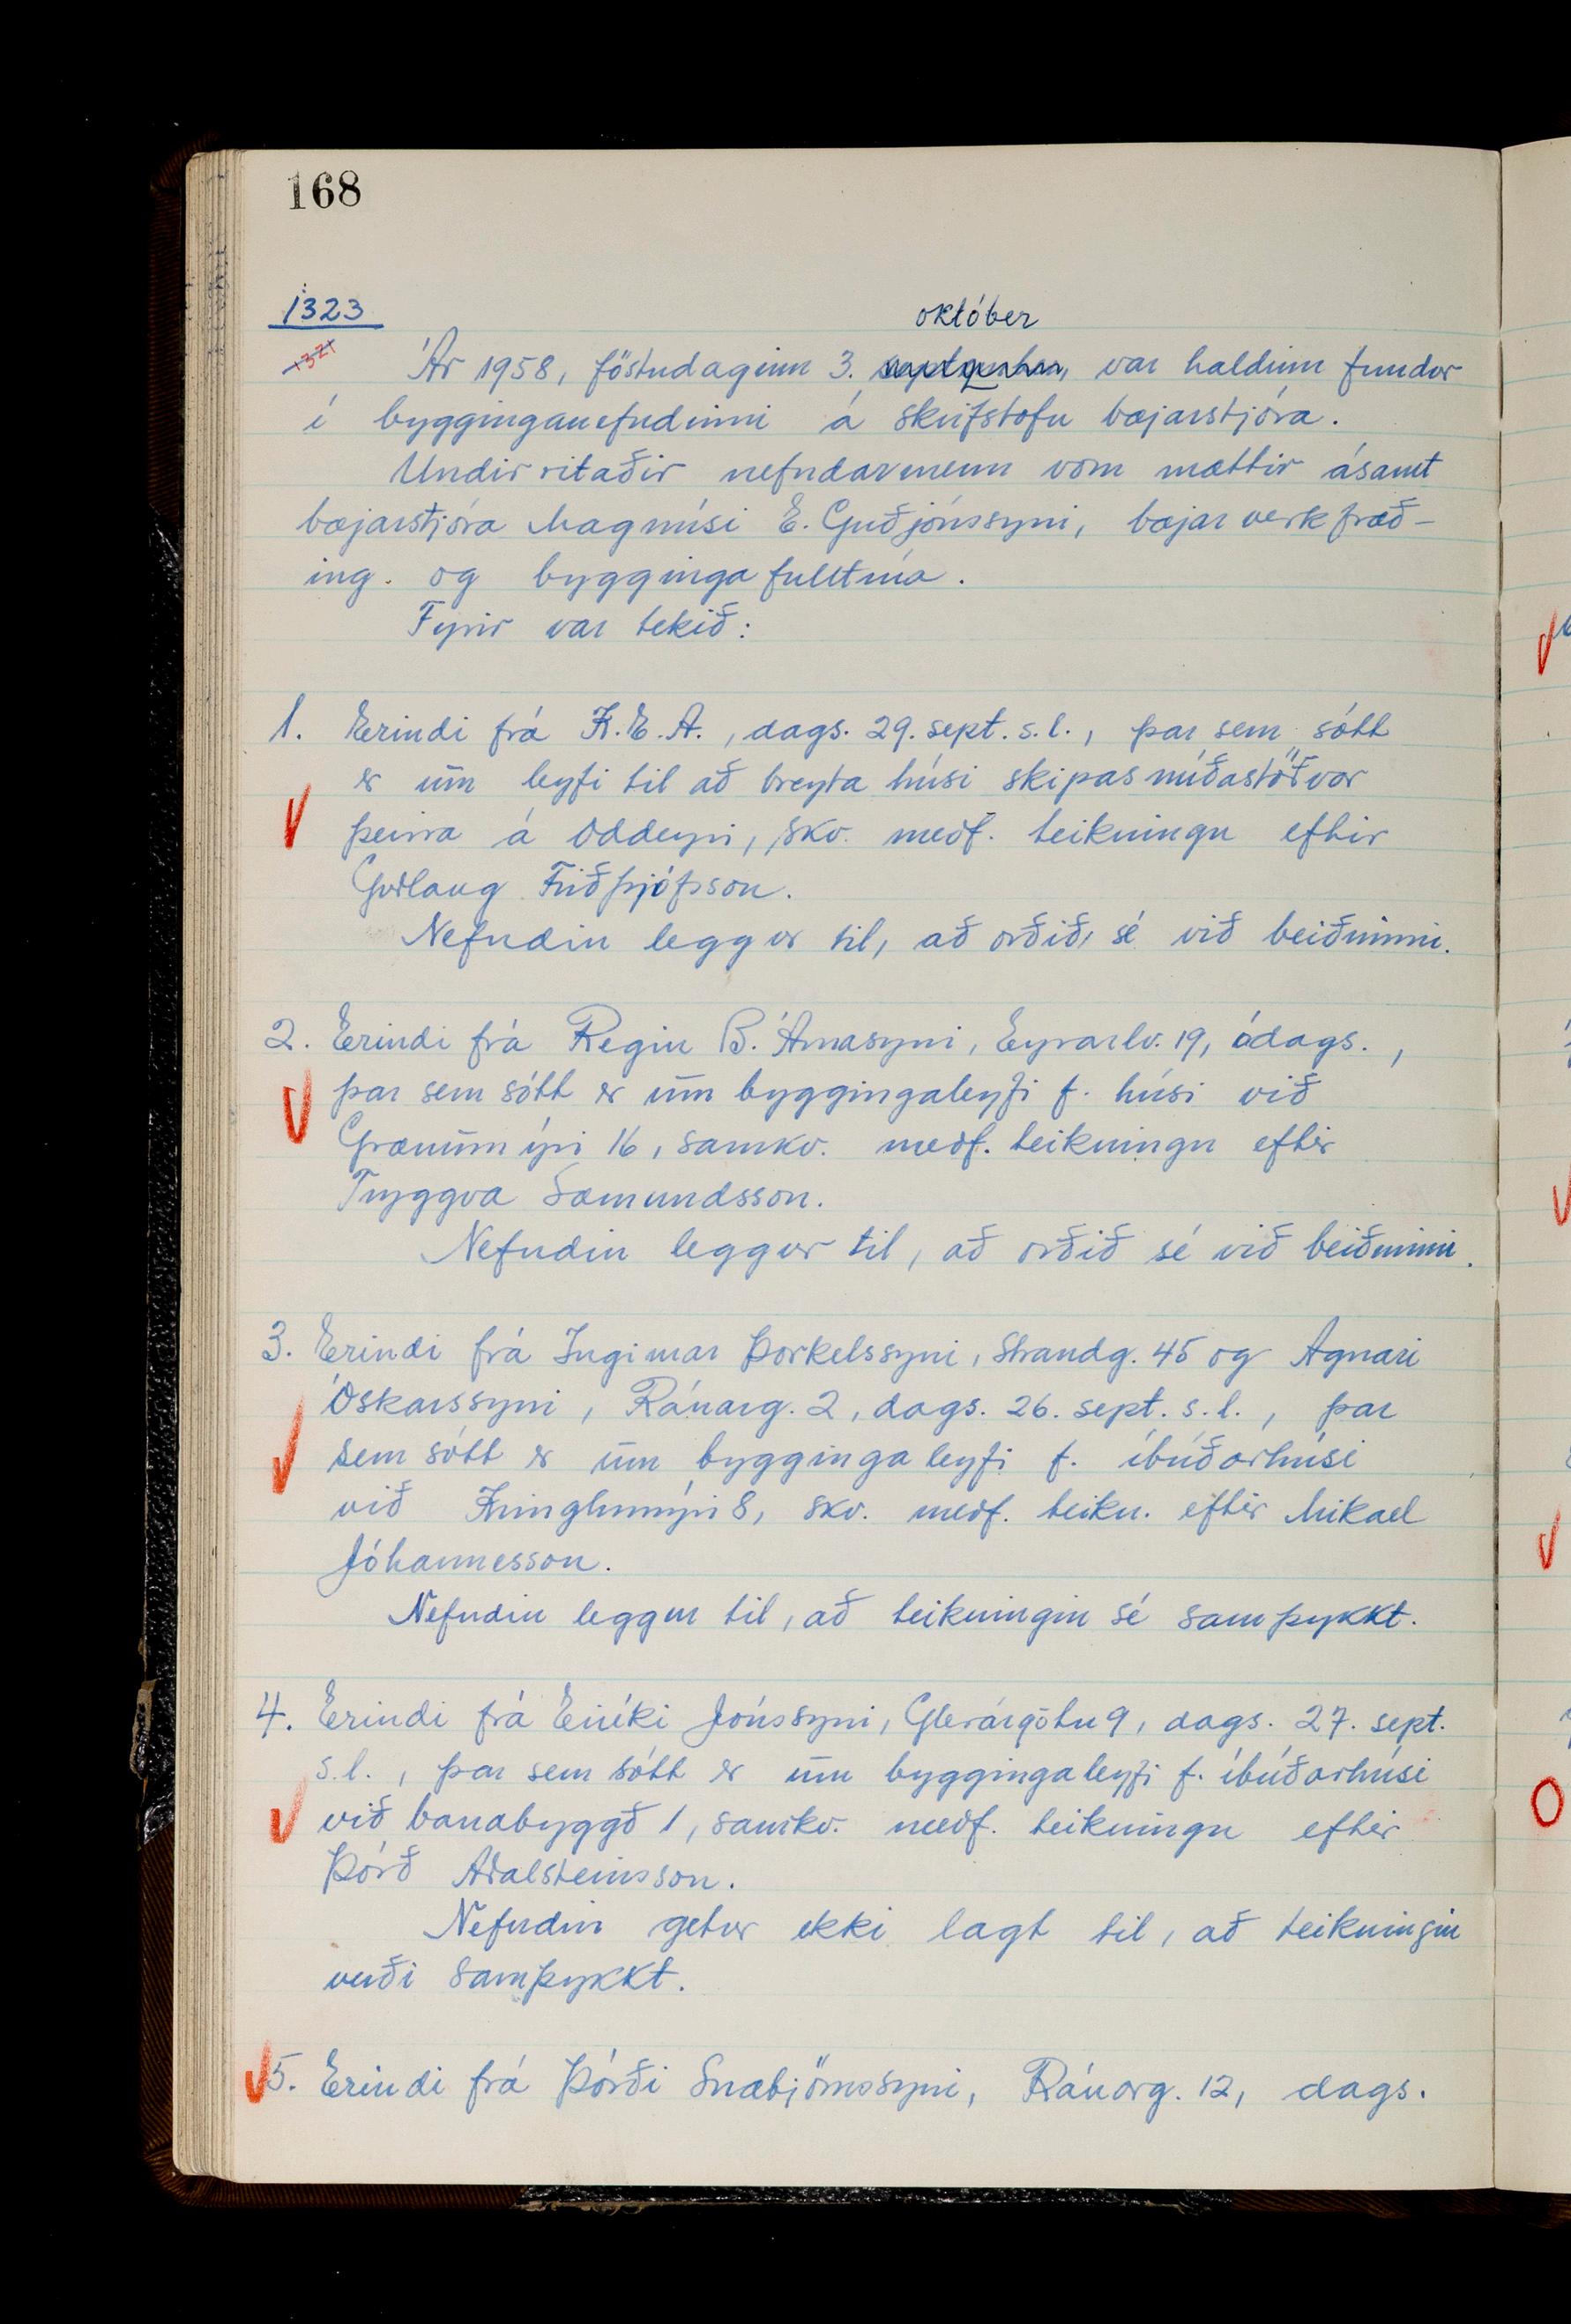 168
1323
1321
október
Ár 1958, föstudaginn 3. september, var haldinn fundur
í bygginganefndinni á skrifstofu bæjarstjóra.
Undirritaðir nefndarmenn voru mættir ásamt
bæjarstjóra Magnúsi E. Guðjónssyni, bæjarverkfræð-
ing. og byggingafulltrúa.
Fyrir var tekið:
1. Erindi frá K.E.A., dags. 29. sept. s.l., þar sem sótt
er um leyfi til að breyta húsi skipasmíðastöðvar
þeirra á Oddeyri, skv. meðf. teikningu eftir
Guðlaug Friðþjófsson.
Nefndin leggur til, að orðið sé við beiðninni.
2. Erindi frá Regin B. Árnasyni, Eyrarlv. 19, ódags.,
þar sem sótt er um byggingaleyfi f. húsi við
Grænumýri 16, samkv. meðf. teikningu eftir
Tryggva Sæmundsson.
Nefndin leggur til, að orðið sé við beiðninni.
3. Erindi frá Ingimar Þorkelssyni, Strandg. 45 og Agnari
Óskarssyni, Ránarg. 2, dags. 26. sept. s.l., þar
sem sótt er um byggingaleyfi f. íbúðarhúsi
við Kringlumýri 8, skv. meðf. teikn. eftir Mikael
Jóhannesson.
Nefndin leggur til, að teikningin sé samþykkt.
4. Erindi frá Eiríki Jónssyni, Glerárgötu 9, dags. 27. sept.
s.l., þar sem sótt er um byggingaleyfi f. íbúðarhúsi
við Ránabyggð 1, samkv. meðf. teikningu eftir
Þórð Aðalsteinsson.
Nefndin getur ekki lagt til, að teikningin
verði samþykkt.
5. Erindi frá Þórði Snæbjörnssyni, Ránarg. 12, dags.